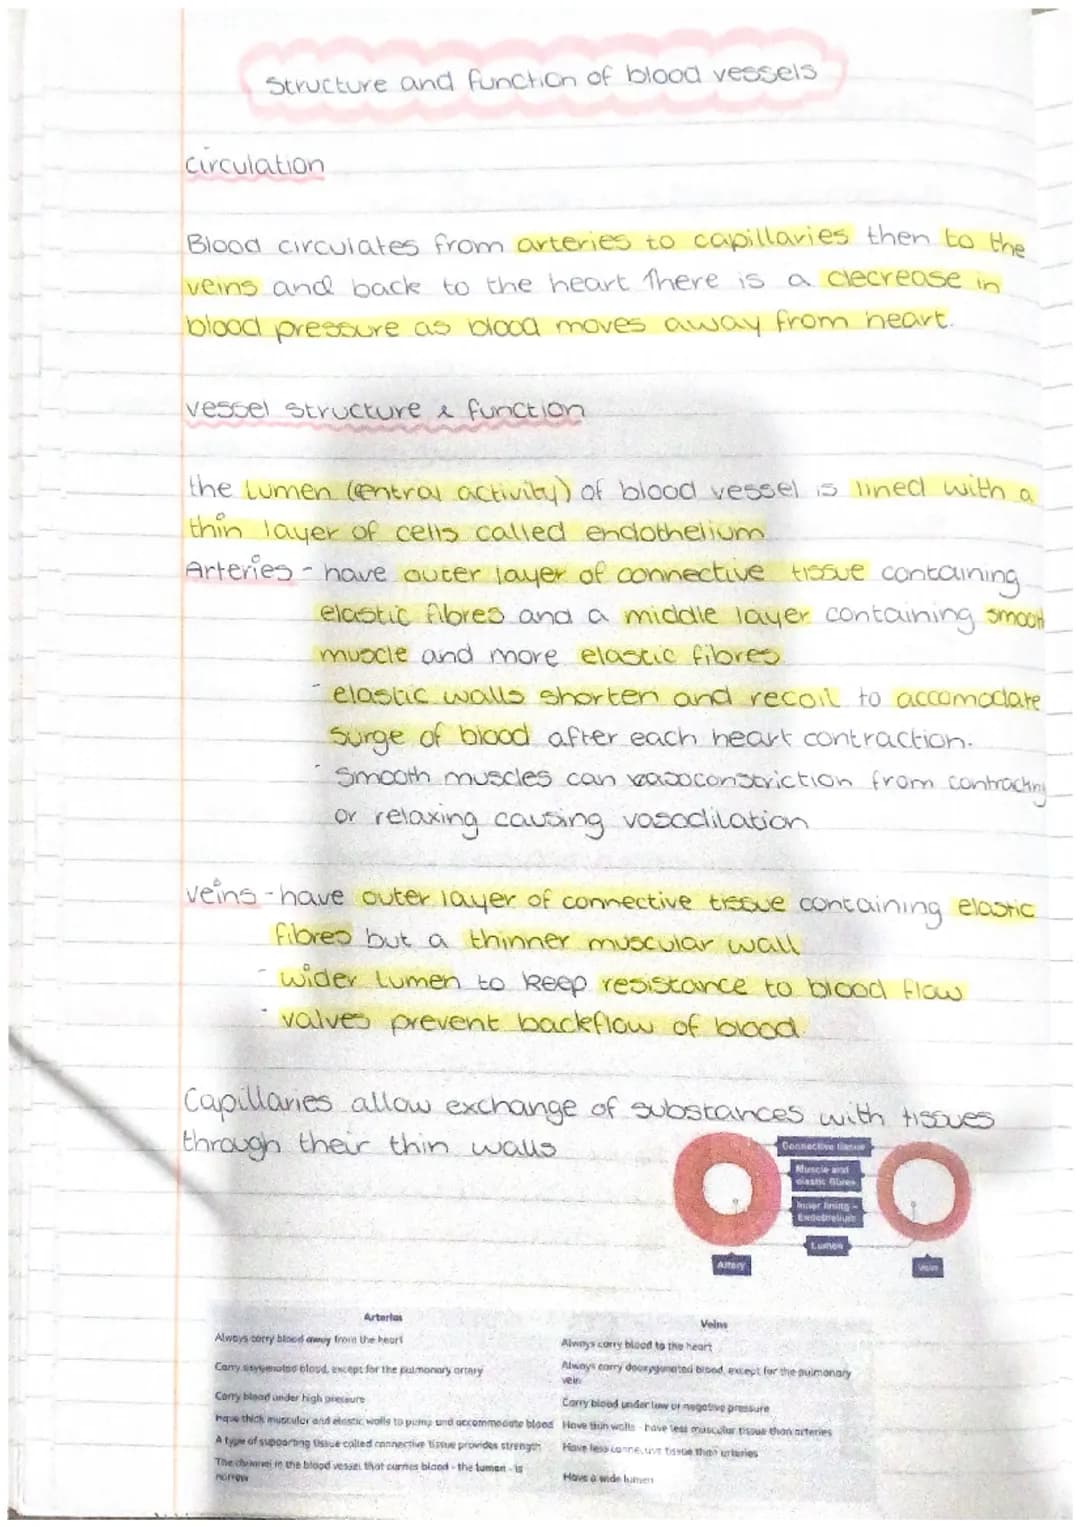 Structure and function of blood vessels
circulation
Blood circulates from arteries to capillaries then to the
veins and back to the heart There is a decrease in
blood pressure as blood moves away from heart.
vessel structure & function
the lumen (central activity) of blood vessel is lined with a
thin layer of cells called endothelium
Arteries - have outer layer of connective tissue containing
elastic fibres and a middle layer containing smooth
muscle and more elastic fibres
- elastic walls shorten and recoil to accomodate
surge of blood after each heart contraction.
- Smooth muscles can vasoconstriction from contracting
or relaxing causing vasodilation
veins - have outer layer of connective tissue containing elastic
fibres but a thinner muscular wall
- wider lumen to keep resistance to blood flow
- valves prevent backflow of blood.
Capillaries allow exchange of substances with tissues
through their thin walls
Connective tissue
Muscle and
elastic fibres
Inner lining -
Endothelium
Lumen
Artery
Vein
Arteries
Veins
Always carry blood away from the heart
Always carry blood to the heart
Carry oxygenated blood, except for the pulmonary artery
Always carry deoxygenated blood, except for the pulmonary
vein
Carry blood under high pressure
Carry blood under low or negative pressure
Have thick muscular and elastic walls to pump and accommodate blood
Have thin walls - have less muscular tissue than arteries
A type of supporting tissue called connective tissue provides strength
Have less connective tissue than arteries
The channel in the blood vessel that carries blood - the lumen - is
narrow
Have a wide lumen